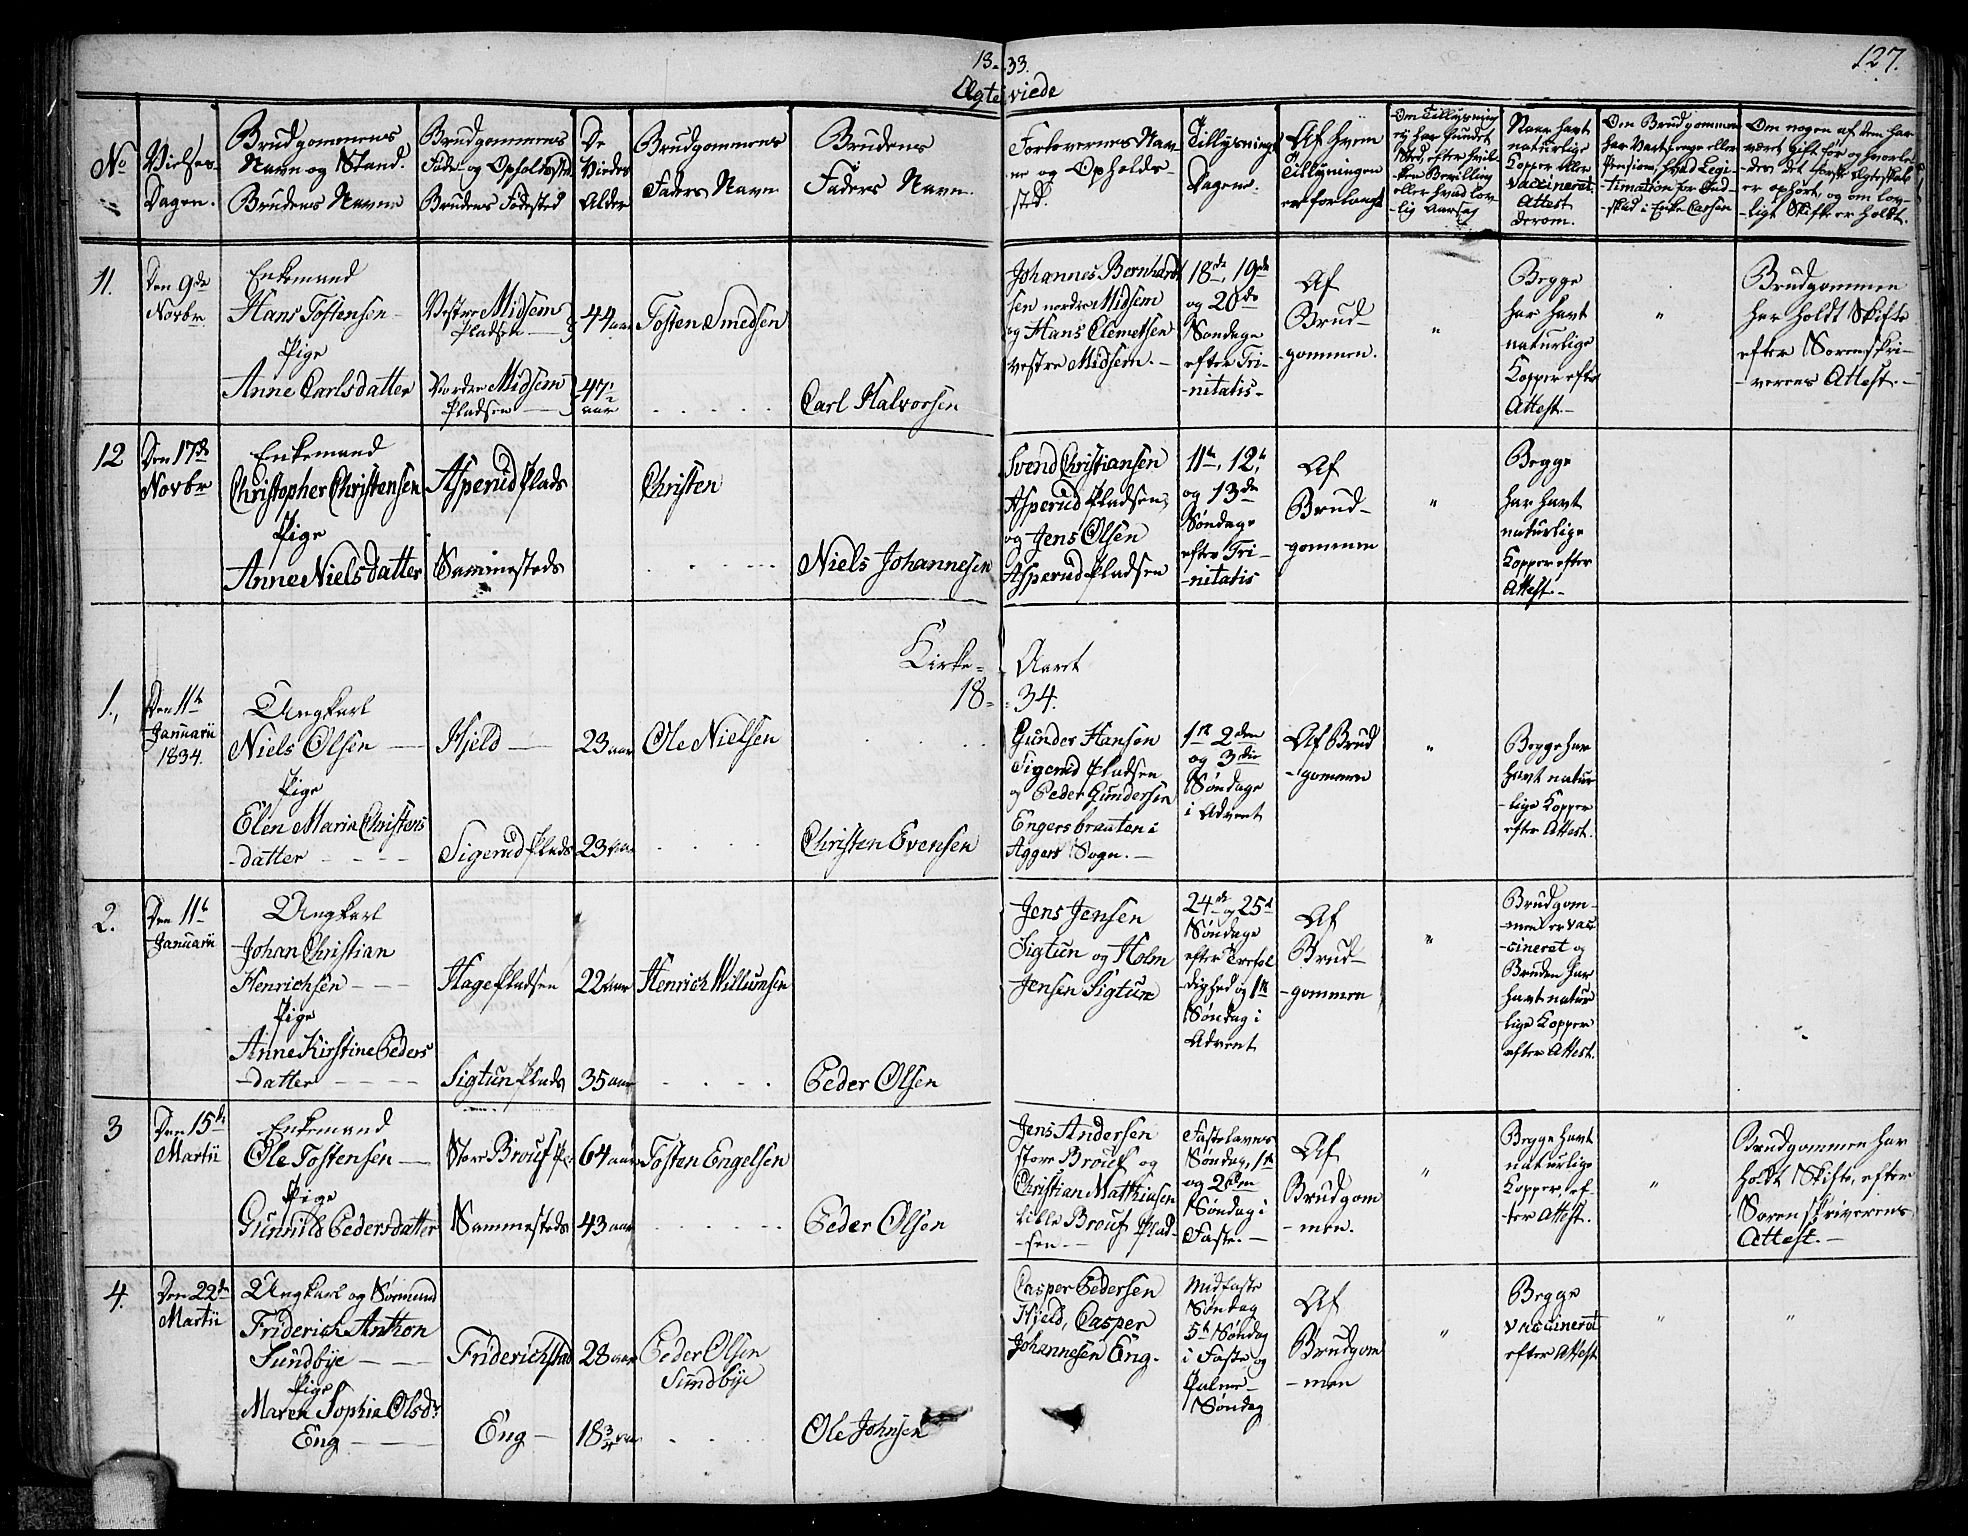 18-33.
127.
Ægteviede
No
Vielses-
Dagen.
Brudgommens
Navn og Stand.
Brudens Navn
Brudgommens
Føde- og Opholdssted
Brudens Fødested
De
Viedes
Alder
Brudgommens
Faders Navn
Brudens
Faders Navn
Forlovernes Nav-
ne og Opholds-
sted.
Tillysnings
Dagene.
Af hvem
Tillysningen
er forlangt
Om Tillysning
ej har fundet
Sted, efter hvil-
ken Bevilling
eller hvad lov-
lig Aarsag
Naar havt
naturlige
Kopper eller
vaccineret.
Attest
derom.
Om Brudgommen
har Vartpenge eller
Pension, hvad Legi-
timation for Ind-
skud i Enke Cassen
Om nogen af dem har
været gift før og hvorle-
des det første Ægteskab
er ophørt, og om lov-
-ligt Skifte er holdt.
11.
Den 9de
Novbr.
Enkemand
Hans Tostensen
Pige
Anne Carlsdatter
Vestre Midsem
Pladsen
Nordre Midsem
Pladsen
44 aar
47 aar
Tosten Smedsen
Carl Halvorsen
Johannes Bernhard-
sen nordre Midsem
og Hans Clemetsen
vestre Midsem.-
18de, 19de
og 20de
Søndage
efter Tri-
-nitatis-
Af
Brud-
-gommen.
"
Begge
har havt
naturlige
Kopper efter
Attest.-
"
Brudgommen
har holdt Skifte
efter Sorenskri-
-verens Attest.-
12
Den 17de
Novbr
Enkemand
Christopher Christensen
Pige
Anne Nielsdatter
Asperud Plads
Sammesteds
Christen
Niels Johannesen
Svend Christiansen
Asperud Pladsen,
og Jens Olsen
Asperud Pladsen
11te, 12te
og 13de
Søndage
efter Tri-
-nitatis
Af
Brud-
-gommen
"
Begge
har havt
naturlige
Kopper efter
Attest.-
Kirke-Aaret
18-34.
1.,
Den 11te
Januarii
1834.
Ungkarl
Niels Olsen
Pige
Elen Maria Christens
-datter
Hjeld
Sigerud Plads
23 aar
23 aar
Ole Nielsen
Christen Evensen
Gunder Hansen
Sigerud Pladsen
og Peder Gundersen
Engersbraaten i
Aggers Sogn.-
1ste 2den
og 3die
Søndage
i Advent
Af Brud
-gommen
"
Begge har
havt natur
-lige Kopper
efter Attest.
2.
Den 11te
Januarii
Ungkarl
Johan Christian
Henrichsen
Pige
Anne Kirstine Peders
-datter
Hage Pladsen
Sigtun Plads
22 aar
35 aar
Henrich Willumsen
Peder Olsen
Jens Jensen
Sigtun og Holm
Jensen Sigtun
24de og 25de
Søndage
efter Trefol
-dighed og 1ste
Søndag i
Advent
Af
Brud-
-gommen
"
Brudgom-
-men er vac
-cineret og
Bruden har
havt natur
-lige Kopper
efter Attest.
3
Den 15de
Martii
Enkemand
Ole Tostensen
Pige
Gunnild Pedersdatter
Store Brouf Pl.
Sammesteds
64 aar
43 aar
Tosten Engelsen
Peder Olsen
Jens Andersen
store Brouf og
Christian Matthiasen
Lille Brouf Plad-
-sen.-
Fastelavns
Søndag, 1ste
og 2den
Søndag i
Faste.-
Af
Brudgom
-men.
"
Begge havt
naturlige
Kopper, ef-
-ter Attest.
"
Brudgommen har
holdt Skifte, efter
Sorenskriverens
Attest.-
4.
Den 22de
Martii
Ungkarl og Sømand
Friderich Anthon
Sundbye
Pige
Maren Sophia Olsdr
Eng
Friderichstad
Eng
28 aar
18 3/4 aar
Peder Olsen
Sundbye
Ole Johnsen
Casper Pedersen
Hjeld, Casper
Johannesen Eng.
Midfaste
Søndag
5te Søndag
i Faste og
Palme-
Søndag
Af
Brudgom
-men
"
Begge
vaccineret
efter Attest
"
"